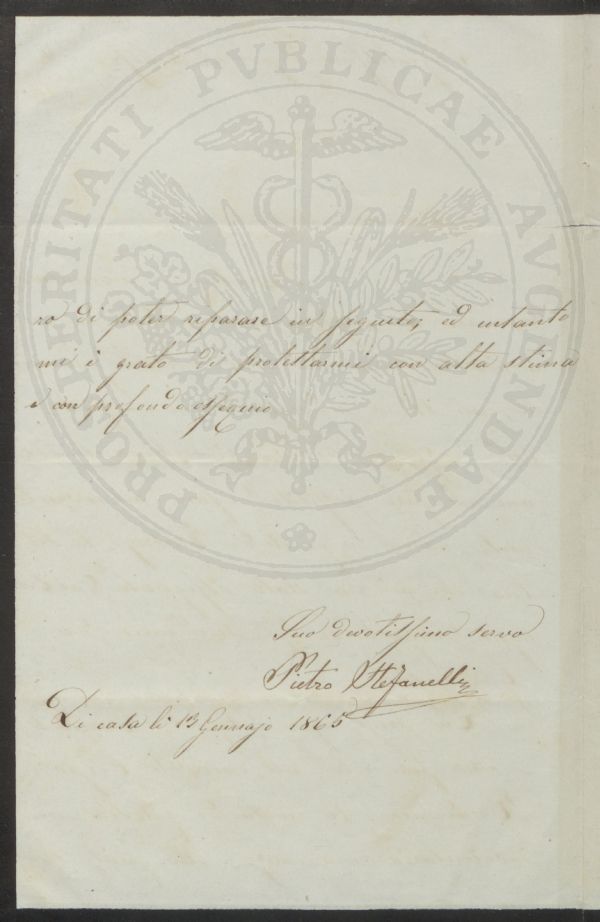 PROSPERITATI PVBLICAE AVGENDAE
ro di poter riparare in seguito; ed intanto
mi è grato di protestarmi con alta stima
e con profondo ossequio
Suo devotissimo servo
Pietro Stefanelli
Di casa li 13 Gennajo 1865